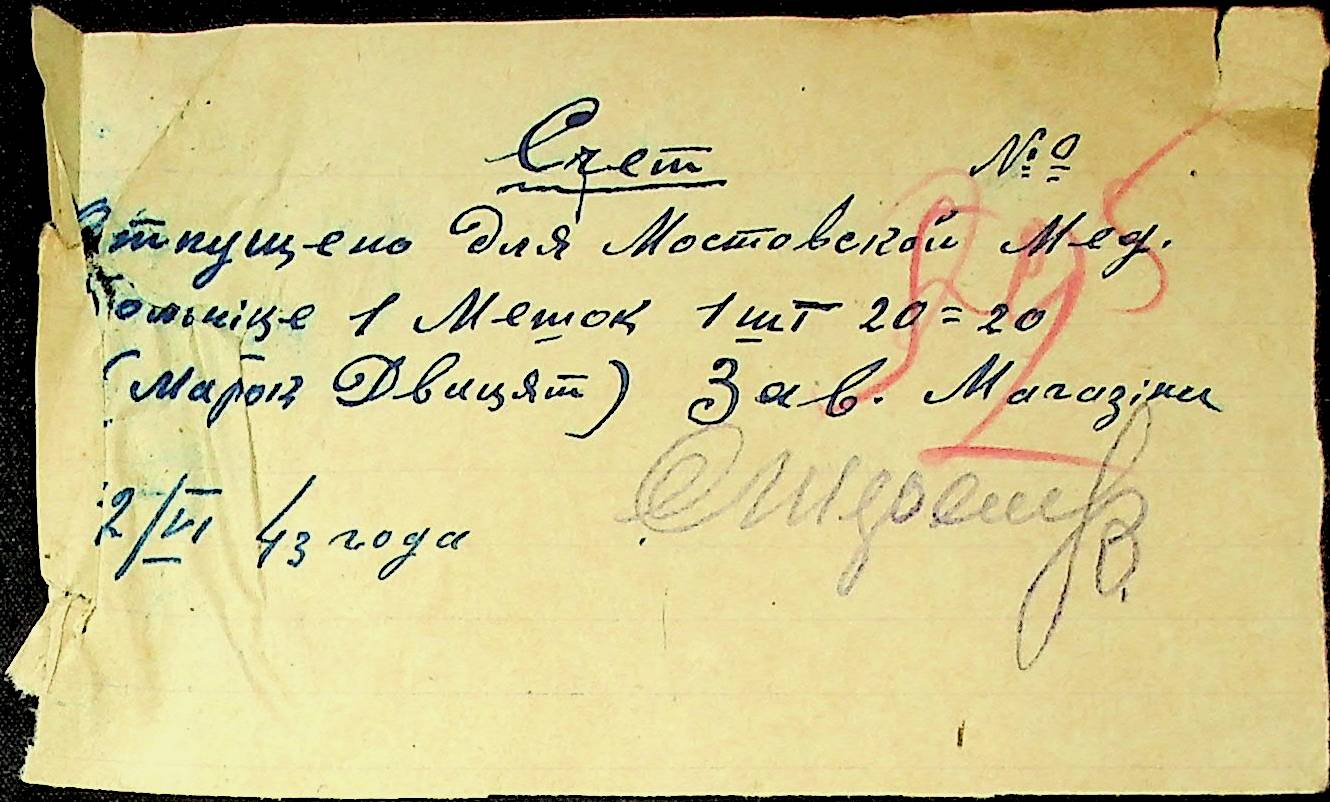 Счет №
Отпущено для Мостовской Мед.
больніце 1 Мешок 1 шт 20 = 20
(Марок Двицят) Зав. Магазіны
2/VI 43 года